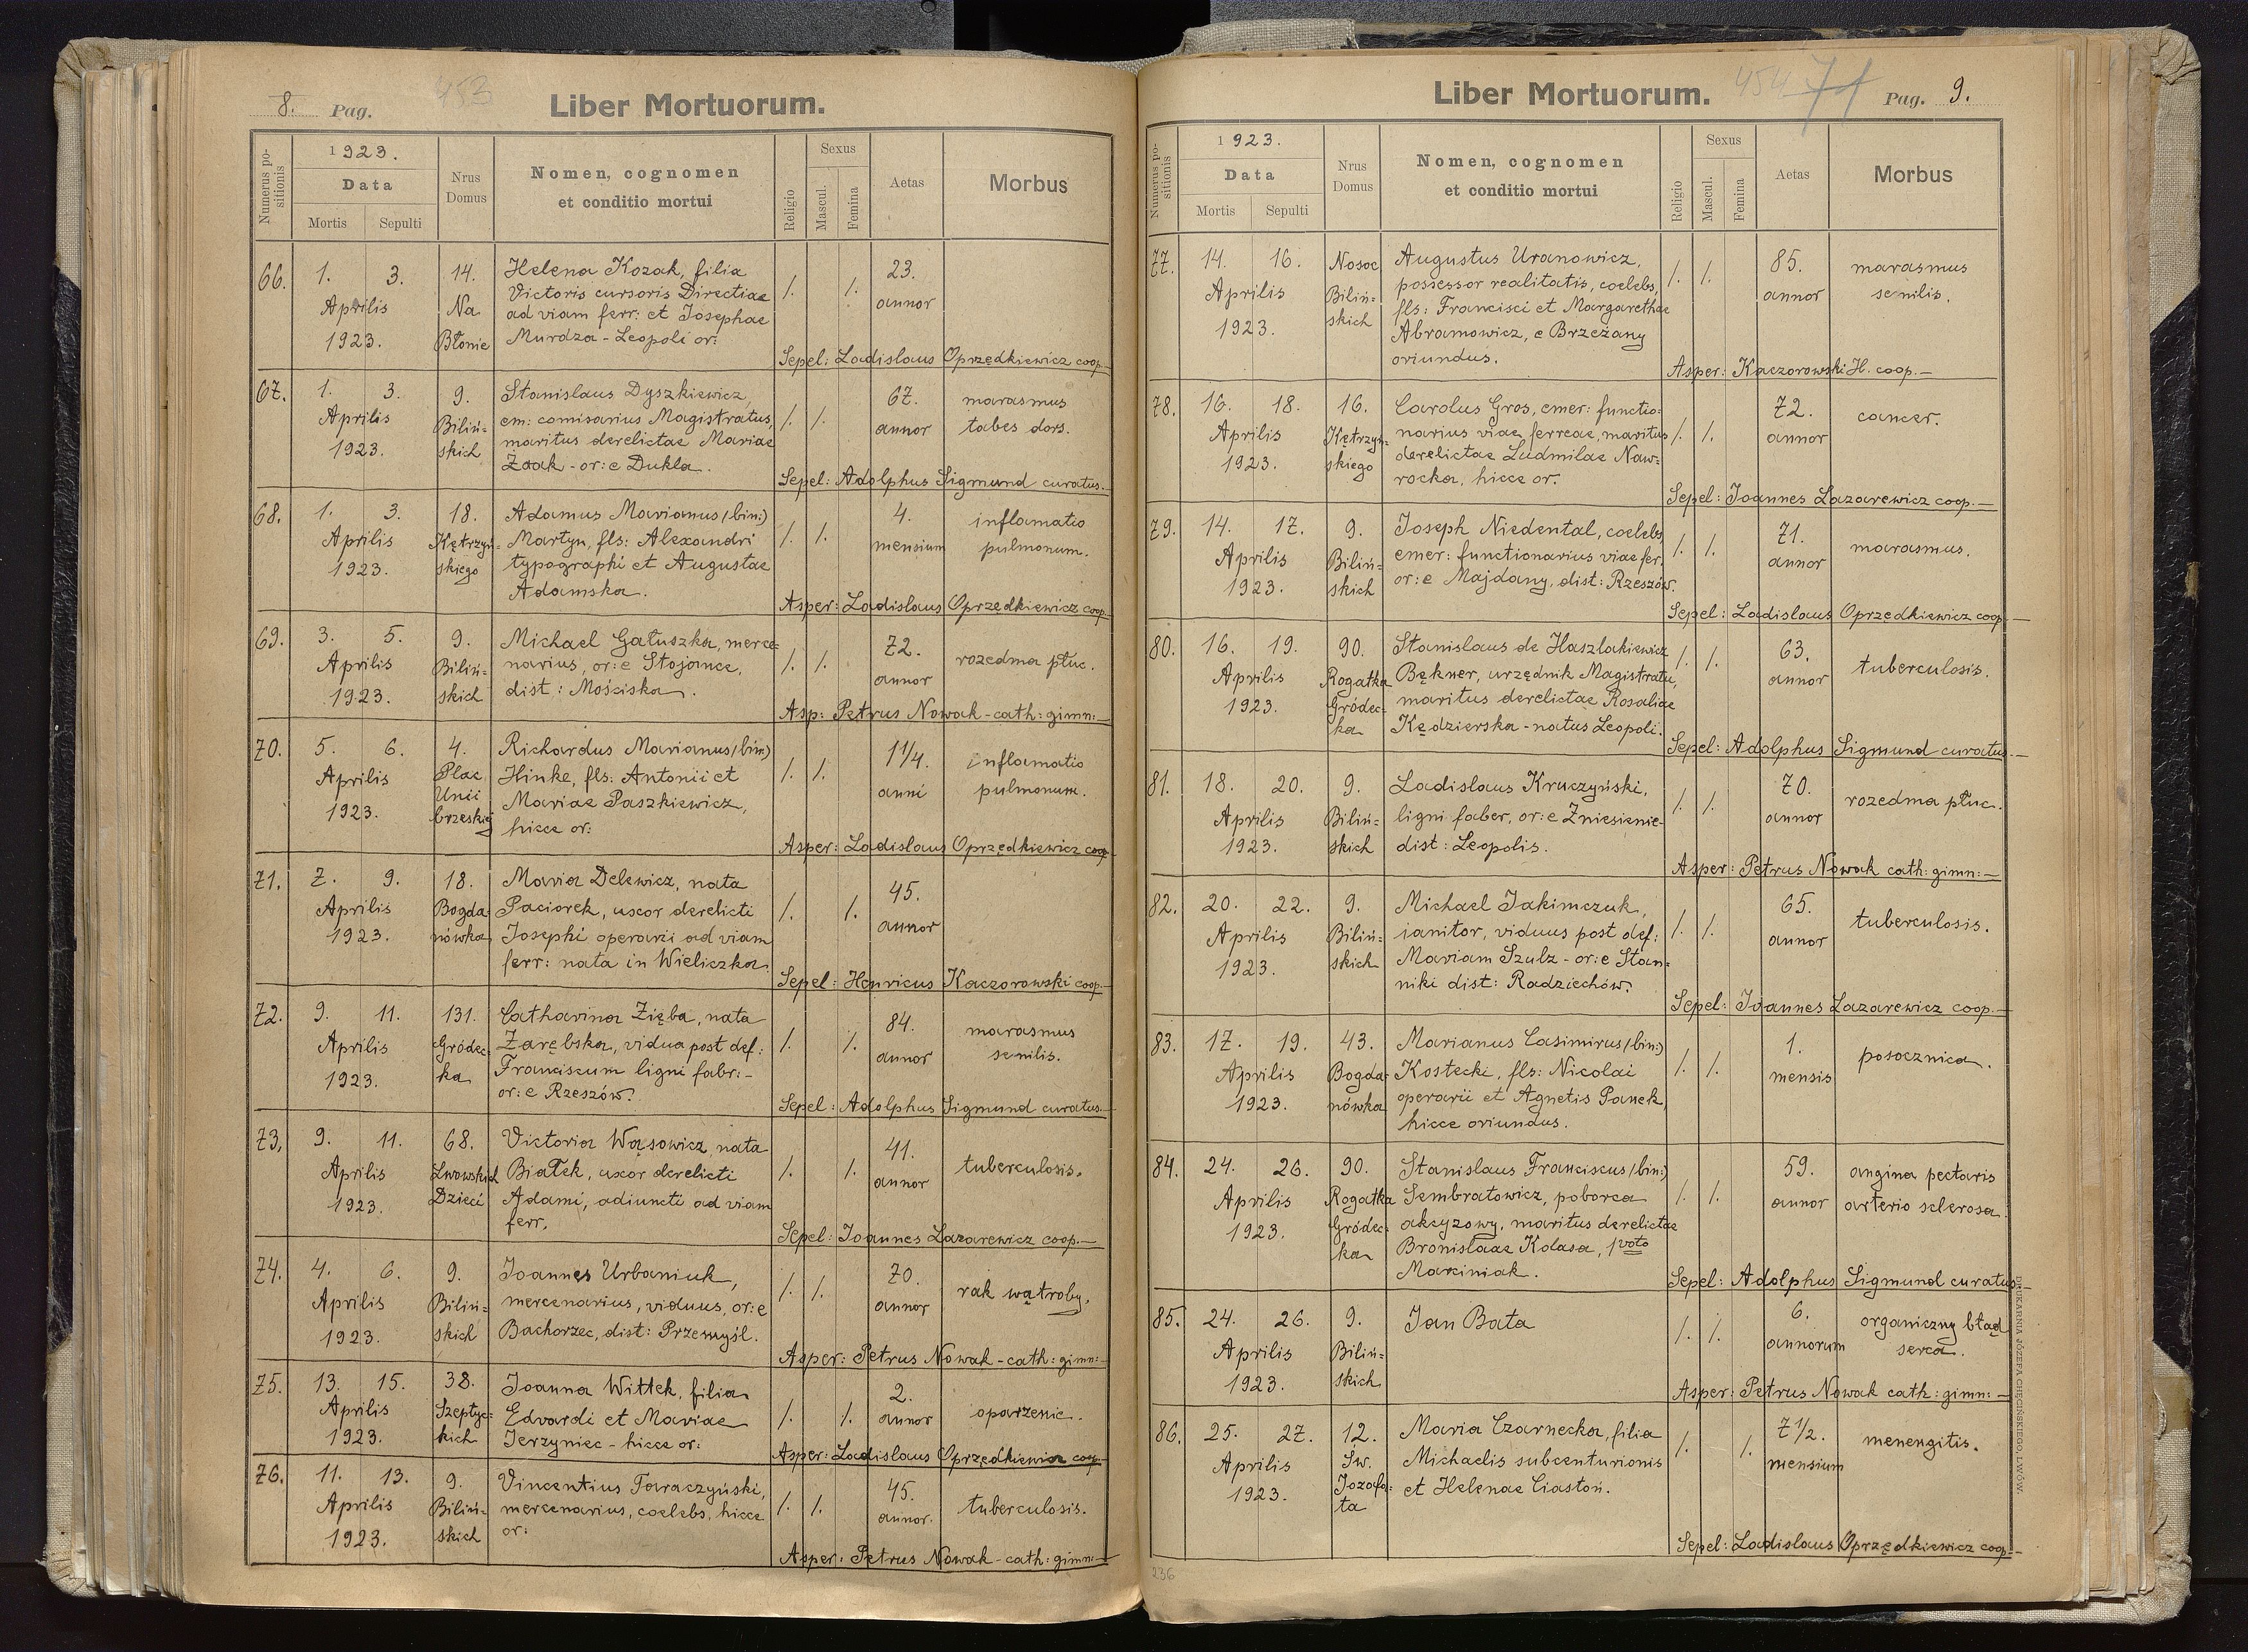 8. Pag.
453
Liber Mortuorum.
Numerus positionis
1923.
Data
Mortis Sepulti
Nrus Domus
Nomen, cognomen
et conditio mortui
Religio
Sexus
Mascul. Femina
Aetas
Morbus
66. 1. 3. 14. Helena Kozak, filia 23.
Aprilis Na Victoris cursoris Directiae /. /. annor
1923. Błonie ad viam ferr: et Josephae
Murdza - Leopoli or:
Sepel: Ladislaus Oprzędkiewicz coop.-
67. 1. 3. 9. Stanislaus Dyszkiewicz, 67. marasmus
Aprilis Biliń= em: comisarius Magistratus, /. /. annor tabes dors.
1923. skich maritus derelictae Mariae
Żaak - or: e Dukla.
Sepel: Adolphus Sigmund curatus.-
68. 1. 3. 18. Adamus Marianus /bin:) 4. inflamatio
Aprilis Kętrzyń= Martyn, fls: Alexandri /. /. mensium pulmonum.
1923. skiego typographi et Augustae
Adamska.
Asper: Ladislaus Oprzędkiewicz coop.-
69. 3. 5. 9. Michael Gałuszka, merce= 72. rozedma płuc.
Aprilis Biliń= narius, or: e Stojance, /. /. annor
1923. skich dist: Mościska.
Asp: Petrus Nowak - cath: gimn:-
70. 5. 6. 4. Richardus Marianus /bin:) 1 1/4. inflamatio
Aprilis Plac Hinke, fls: Antonii et /. /. anni pulmonum.
1923. Unii Mariae Paszkiewicz,
brzeskiej hicce or:
Asper: Ladislaus Oprzędkiewicz coop.-
71. 7. 9. 18. Maria Delewicz, nata 45.
Aprilis Bogda= Paciorek, uxor derelicti /. /. annor
1923. nówka Josephi operarii ad viam
ferr: nata in Wieliczka.
Sepel: Henricus Kaczorowski coop.-
72. 9. 11. 131. Catharina Zięba, nata 84. marasmus
Aprilis Gródec= Zarębska, vidua post def: /. /. annor senilis.
1923. ka Franciscum ligni fabr: -
or: e Rzeszów.
Sepel: Adolphus Sigmund curatus.-
73. 9. 11. 68. Victoria Wąsowicz, nata 41. tuberculosis.
Aprilis Lwowskich Białek, uxor derelicti /. /. annor
1923. Dzieci Adami, adiuncti ad viam
ferr.
Sepel: Joannes Lazarewicz coop.-
74. 4. 6. 9. Joannes Urbaniuk, 70. rak wątroby.
Aprilis Biliń= mercenarius, viduus, or: e /. /. annor
1923. skich Bachorzec, dist: Przemyśl.
Asper: Petrus Nowak - cath: gimn:-
75. 13. 15. 38. Joanna Wittek, filia 2. oparzenie.
Aprilis Szeptyc= Edvardi et Mariae /. /. annor
1923. kich Jerzyniec - hicce or:
Asper: Ladislaus Oprzędkiewicz coop.-
76. 11. 13. 9. Vincentius Taraczyński, 45. tuberculosis.
Aprilis Biliń= mercenarius, coelebs, hicce /. /. annor.
1923. skich or:
Asper: Petrus Nowak - cath: gimn:-
Liber Mortuorum.
454
Pag. 9.
Numerus positionis
1923.
Data
Mortis Sepulti
Nrus Domus
Nomen, cognomen
et conditio mortui
Religio
Sexus
Mascul. Femina
Aetas
Morbus
77. 14. 16. Nosoc. Augustus Uranowicz, 85. marasmus
Aprilis Biliń= possessor realitatis, coelebs, /. /. annor senilis.
1923. skich fls: Francisci et Margarethae
Abramowicz, e Brzeżany
oriundus.
Asper: Kaczorowski H. coop.-
78. 16. 18. 16. Carolus Gros, emer: functio= 72. cancer.
Aprilis Kętrzyń= narius viae ferreae, maritus /. /. annor
1923. skiego derelictae Ludmilae Naw=
rocka, hicce or.
Sepel: Joannes Lazarewicz coop.-
79. 14. 17. 9. Joseph Niedental, coelebs, 71. marasmus.
Aprilis Biliń= emer: functionarius viae fer. /. /. annor
1923. skich or: e Majdany, dist: Rzeszów.
Sepel: Ladislaus Oprzędkiewicz coop.-
80. 16. 19. 90. Stanislaus de Haszlakiewicz 63. tuberculosis.
Aprilis Rogatka Bękner, urzędnik Magistratu, /. /. annor
1923. Gródec= maritus derelictae Rosaliae
ka Kędzierska - natus Leopoli.
Sepel: Adolphus Sigmund curatus.-
81. 18. 20. 9. Ladislaus Kruczyński, 70. rozedma płuc.
Aprilis Biliń= ligni faber, or: e Zniesienie- /. /. annor
1923. skich dist: Leopolis.
Asper: Petrus Nowak cath: gimn:-
82. 20. 22. 9. Michael Jakimczuk, 65. tuberculosis.
Aprilis Biliń= ianitor, viduus post def: /. /. annor
1923. skich Mariam Szulz - or: e Stan=
niki dist: Radziechów.
Sepel: Joannes Lazarewicz coop.-
83. 17. 19. 43. Marianus Casimirus /bin:) 1. posocznica.
Aprilis Bogda= Kostecki, fls: Nicolai /. /. mensis
1923. nówka operarii et Agnetis Panek
hicce oriundus.
84. 24. 26. 90. Stanislaus Franciscus /bin:) 59. angina pectaris
Aprilis Rogatka Sembratowicz, poborca /. /. annor arterio sclerosa.
1923. Gródec= akcyzowy, maritus derelictae
ka Bronislaae Kolasa, 1 voto
Marciniak.
Sepel: Adolphus Sigmund curatus.-
85. 24. 26. 9. Jan Bata 6. organiczny błąd
Aprilis Biliń= /. /. annorum serca.
1923. skich
Asper: Petrus Nowak cath: gimn:-
86. 25. 27. 12. Maria Czarnecka, filia 7 1/2. menengitis.
Aprilis Św. Michaelis subcenturionis /. /. mensium
1923. Jozafa= et Helenae Ciastoń.
ta
Sepel: Ladislaus Oprzędkiewicz coop.-
236
DRUKARNIA JÓZEFA CHĘCIŃSKIEGO, LWÓW.